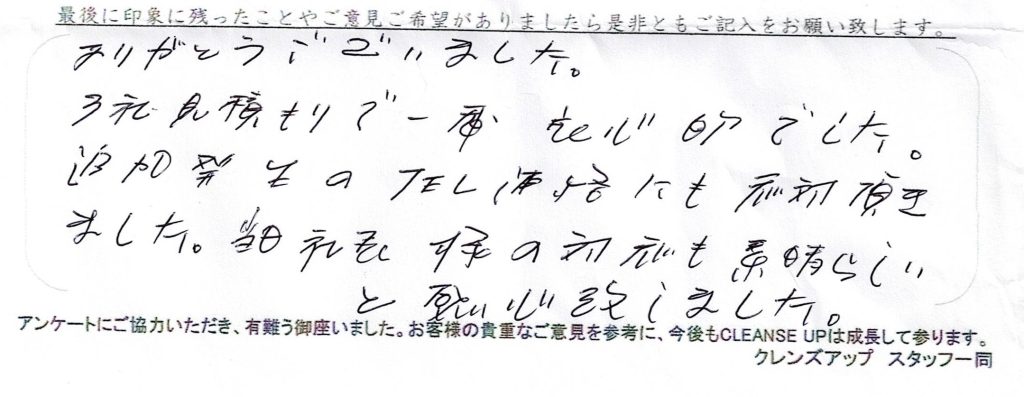 最後に印象に残ったことやご意見ご希望がありましたら是非ともご記入をお願い致します。
ありがとうございました。
3社見積もりで一番良心的でした。
追加発生のTEL連絡にも応対頂き
ました。当日社長様の対応も素晴らしい
と感心致しました。
アンケートにご協力いただき、有難う御座いました。お客様の貴重なご意見を参考に、今後もCLEANSE UPは成長して参ります。
クレンズアップ スタッフ一同